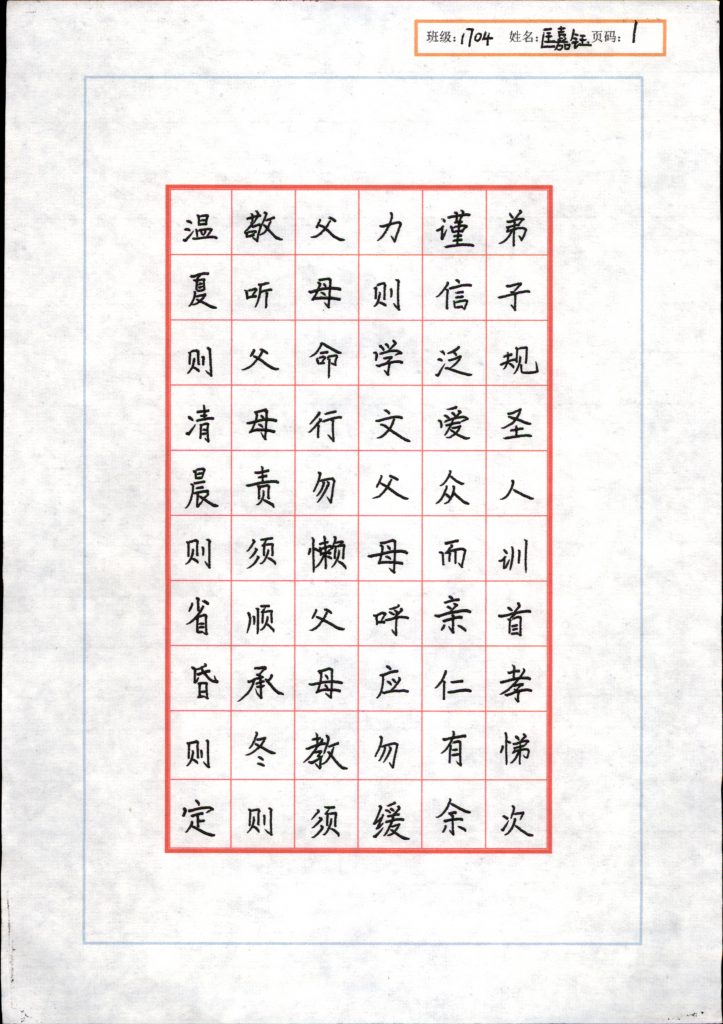 班级:1704 姓名:匡嘉钰 页码:1
弟子规圣人训首孝悌次
谨信泛爱众而亲仁有余
力则学文父母呼应勿缓
父母命行勿懒父母教须
敬听父母责须顺承冬则
温夏则凊晨则省昏则定